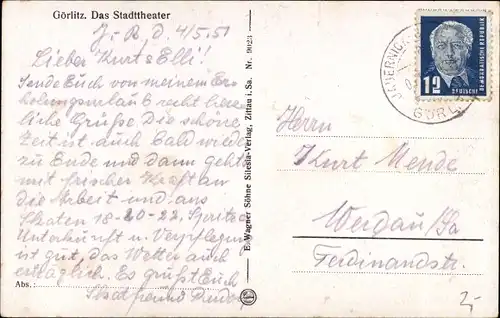 Görlitz. Das Stadttheater
J.-R. d. 4/5.51
Lieber Kurt & Elli!
Sende Euch von meinem Er-
holungsurlaub recht herz-
liche Grüße Die schöne
Zeit ist auch bald wieder
zu Ende und dann geht's
mit frischer Kraft an
die Arbeit und ans
Skaten 18-20-22
Unterkunft u. Verpflegung
ist gut, das Wetter auch
erträglich. Es grüßt Euch
Skatfreund
Abs.:
E. Wagner Söhne Silesia-Verlag, Zittau i. Sa. Nr. 9023
GÖRL
12
DEUTSCHE
DEMOKRATISCHE REPUBLIK
Herrn
Kurt Mende
Werdau/Sa
Ferdinandstr.
2,-